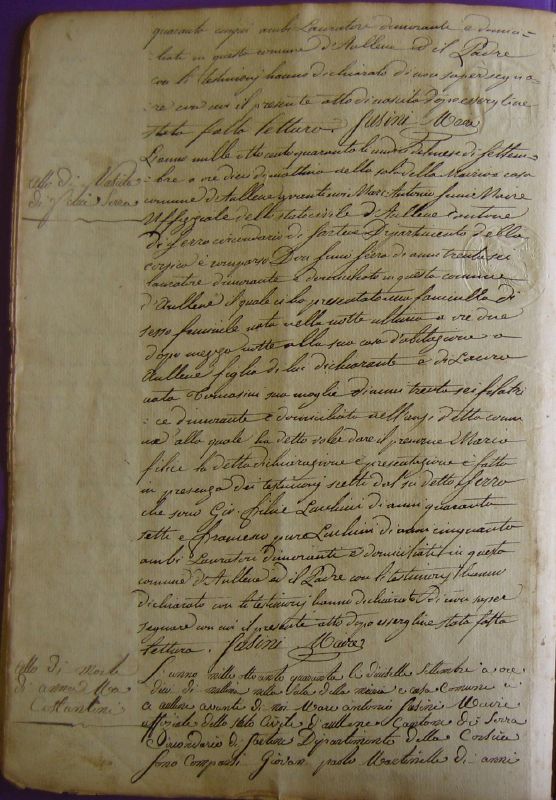 quaranta cinque ambi Lavoratori dimorante e domici
liati in questa comune d'Aullene ed il Padre
con li testimonj hanno dichiarato di non saper segna
re con noi il presente atto di nascita dopo essergline
stata fatta lettura. Susini Maire
L'anno mille otto cento quaranta li del mese di settem
bre a ore dieci di mattina nella sala della Mairia e casa
comune d'Aullene avanti noi Marc Antonio Susini Maire
Uffiziale dello stato civile d'Aullene cantone
di Serra circondario di Sartene Dipartimento della
Corsica è comparso Don di anni trenta sei
lavoratore dimorante e domiciliato in questa comune
d'Aullene il quale ci ha presentato una fanciulla di
sesso feminile nata nella notte ultima a ore due
dopo mezzo notte nella sua casa d'abitazione a
Aullene figlia di lui dichiarante e di Laura
nata Tomasini sua moglie di anni trenta sei filatri
ce dimorante e domiciliata nell'anzi detta comu
ne alla quale ha detto voler dare il prenome Maria
Felice la detta dichiarazione e presentazione è fatta
in presenza dei testimonj scelti dal su detto
che sono Gio. Felice Lucchini di anni quaranta
sette e Francesco pure Lucchini di anni cinquanta
ambi Lavoratori dimorante e domiciliati in questa
comune d'Aullene ed il Padre con li testimonj hanno
dichiarato con li testimonj hanno dichiarato di non saper
segnare con noi il presente atto dopo essergline stata fatta
lettura. Susini Maire
atto di Nascita
di Felice
atto di morte
di anna Ma
Costantini
L'anno mille ottocento quaranta li diecisette Settembre a ore
dieci di mattina nella sala della mairia e casa Comune
a aullene avante di noi Marc antonio Susini Maire
officiale dello stato Civile d'aullene Cantone di Serra
Circondario di Sartene Dipartimento della Corsica
sono Comparsi Giovan paolo Martinelli di anni